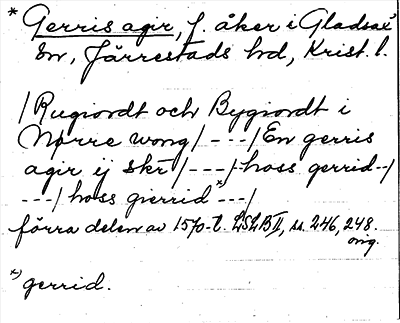 * Gerris agir, f. åker i Gladsax
sn, Järrestads hd, Krist. l.
/Rugiordt och Bygiordt i
Nørre wong/ ---/En gerris
agir ij skr/ ---/hoss gerrid--/
---/ hoss gierrid *) ---/
förra delen av 1570-t. LSLB II, ss. 246, 248.
orig.
*) gerrid.